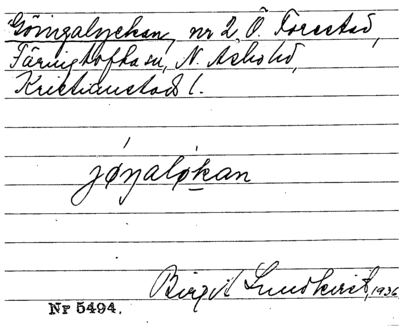 Göingalyckan, nr 2, Ö. Forestad,
Färingtofta sn, N. Åsbo hd,
Kristianstads l.
jøŋaløkan
Birgit Lundkvist, 1936
Nr 5494.